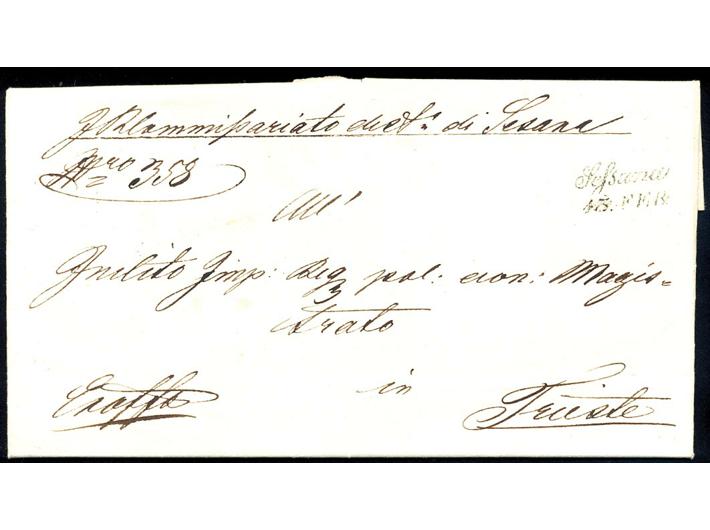 J R Commissariato distt. di Sesana
Nro 358
Sessana
All'
13. FEB.
Inclito Imp: Reg. pol: econ: Magis=
3
trato
in
Exoffo
Trieste